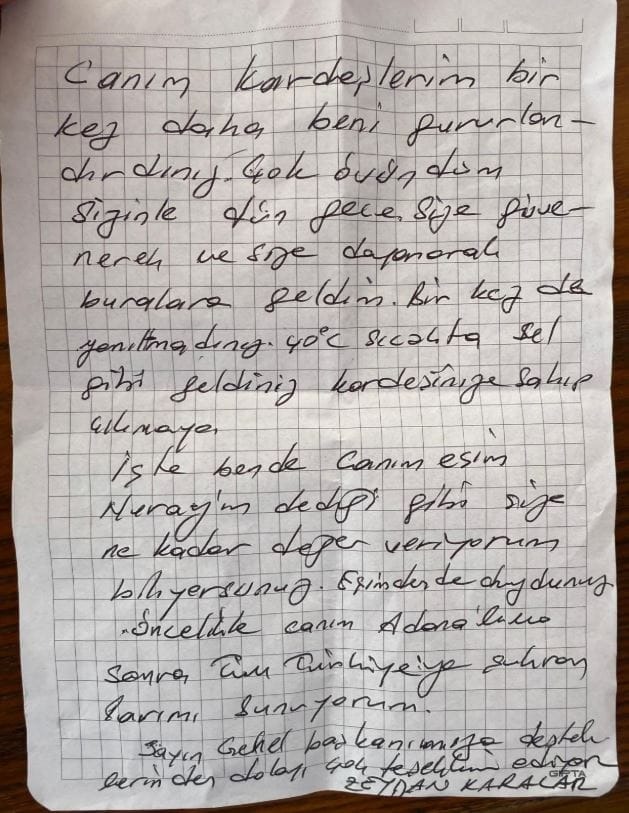 Canım kardeşlerim bir
kez daha beni gururlan-
dırdınız. Çok övündüm
sizinle dün gece. Size güve-
nerek ve size dayanarak
buralara geldim. Bir kez de
yanıltmadınız. 40°C sıcakta sel
gibi geldiniz kardeşinize sahip
çıkmaya.
İşte bende canım eşim
Nuray'ın dediği gibi size
ne kadar değer veriyorum
biliyorsunuz. Eşimden de duydunuz
Öncelikle canım Adana'lıma
sonra tüm Türkiye'ye şükran
larımı sunuyorum.
Sayın Genel başkanımıza destek
lerinden dolayı çok teşekkür ediyor
ZEYDAN KARALAR
GIPTA